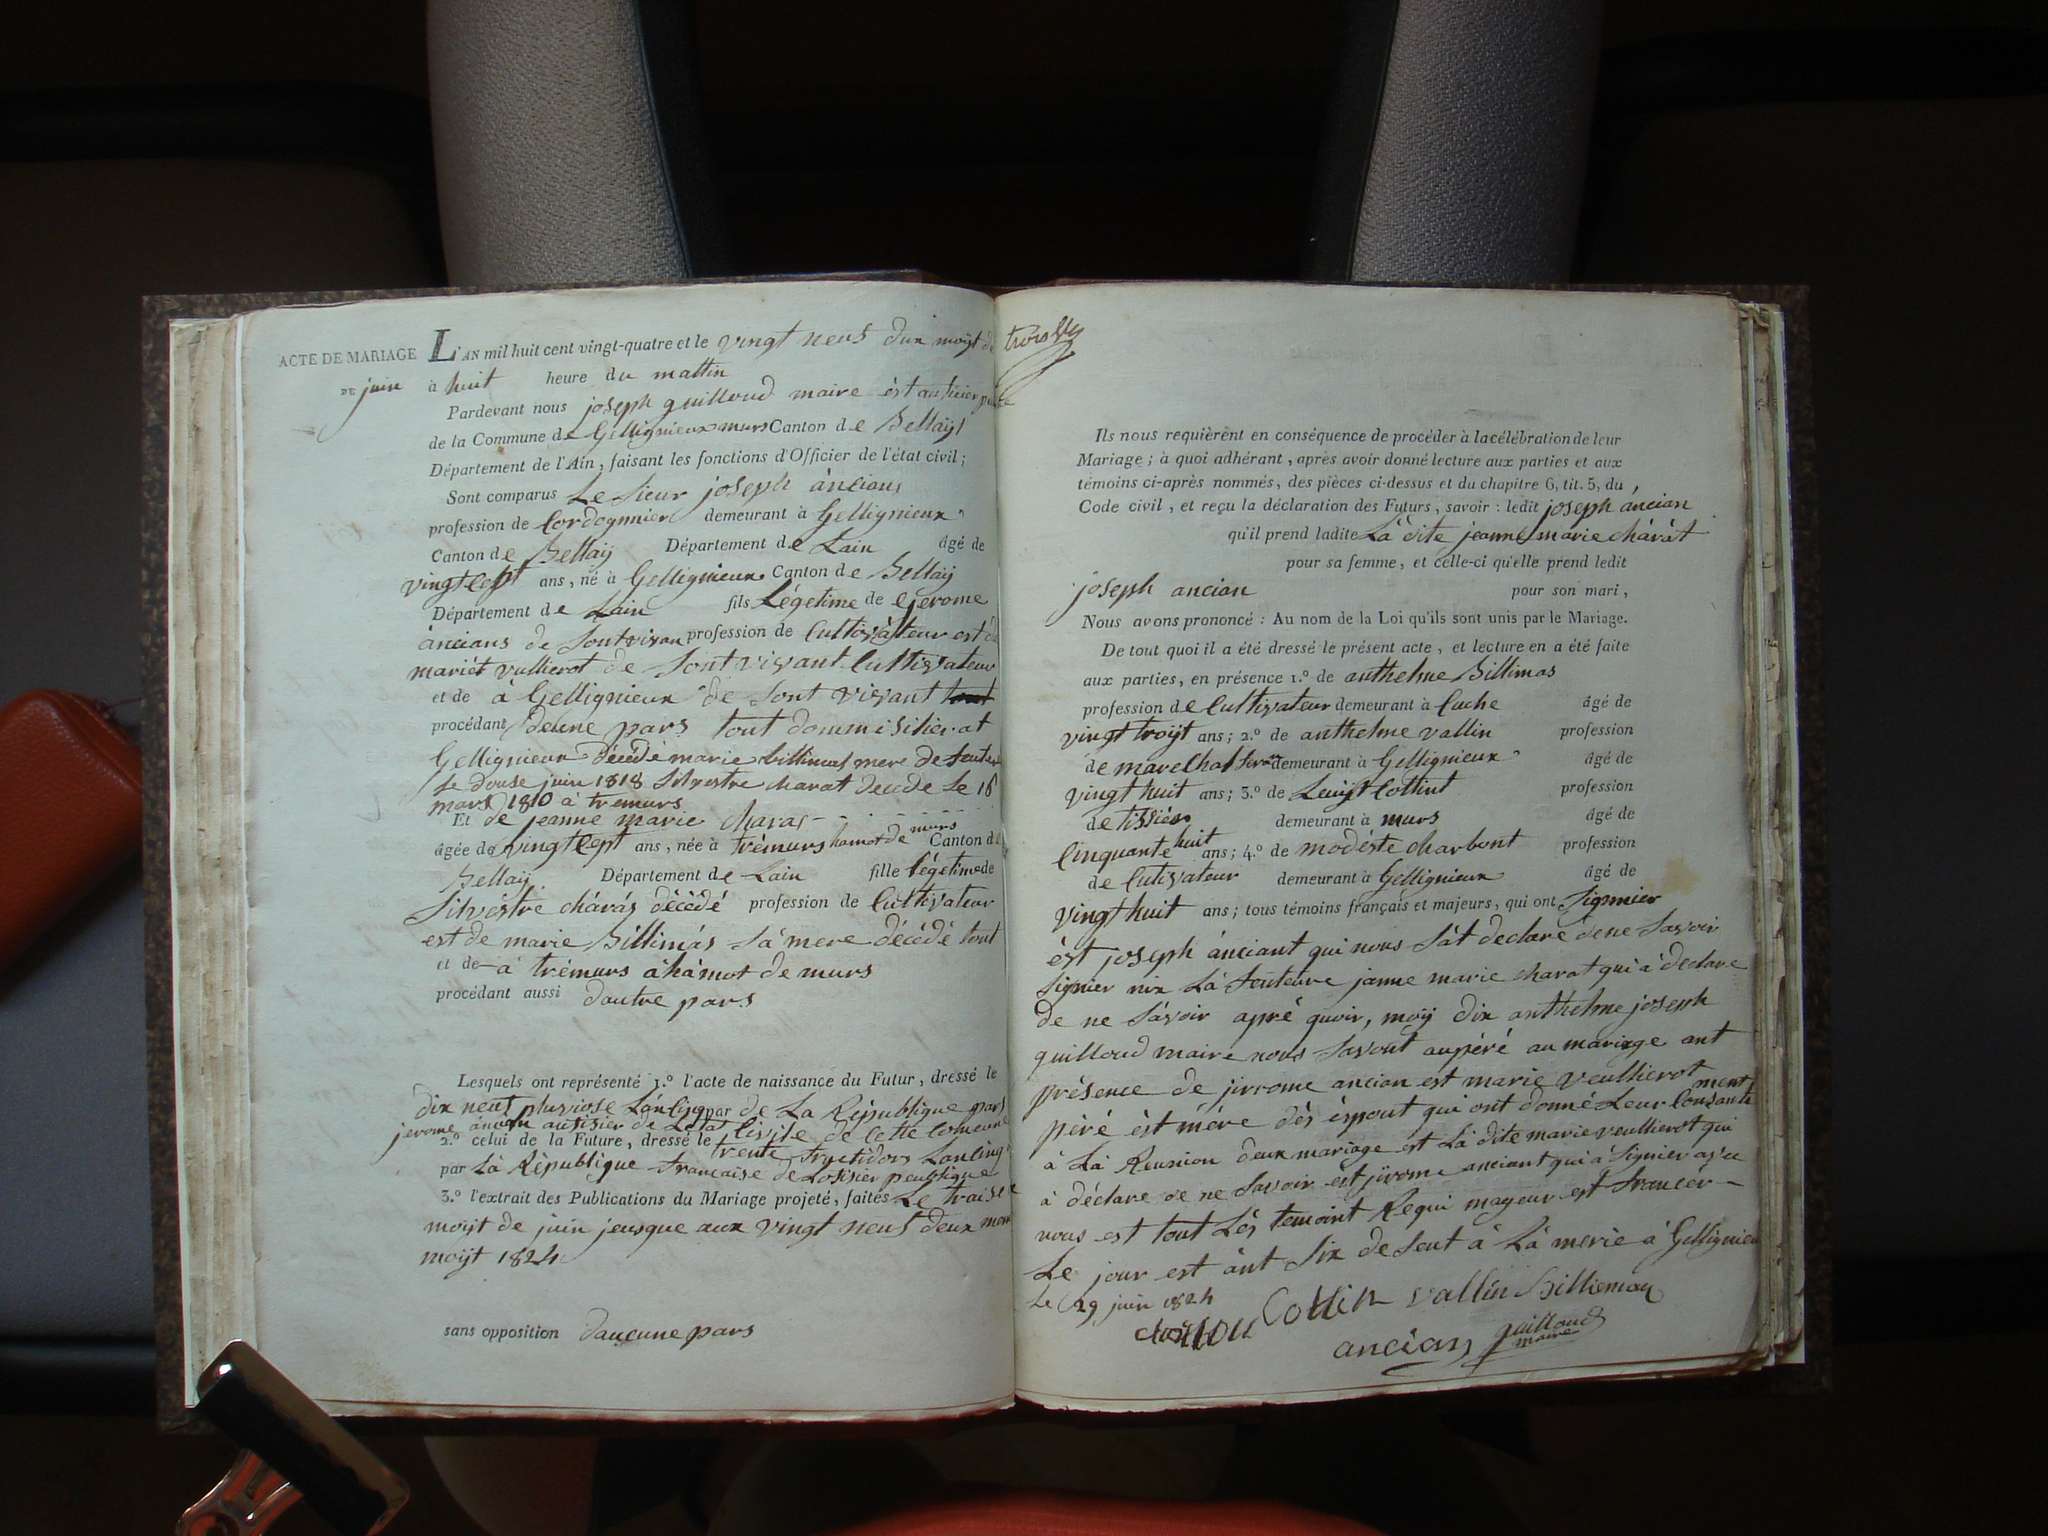 ACTE DE MARIAGE L'AN mil huit cent vingt-quatre et le vingt neuf dux moyt de
DE juin à huit heure du mattin
Pardevant nous joseph guilloud maire èst
de la Commune de Gellignieux murs Canton de Bellaÿ
Département de l'Ain, faisant les fonctions d'Officier de l'état civil;
Sont comparus Le sieur joseph àncians
profession de Cordognnier demeurant à Gellignieux
Canton de Bellaÿ Département de Lain âgé de
vingt sept ans, né à Gellignieux Canton de Bellaÿ
Département de Lain fils Légetime de gerome
àncians de profession de Cultivateur est de
mariét vullierot de sont vivant Cultivateur
et de à Gellignieux de sont vivant
procédant deune pars tout dommisilier at
Gellignieux décédé marie billimas mere de
Le douse juin 1818 Silvestre charat decede Le 16
mars 1810 à tremurs
Et de jeanne marie charas
âgée de vingt sept ans, née à trémurs hamot de murs Canton de
Bellaÿ Département de Lain fille légetime de
Silvéstre cháràs décédé profession de Cultivateur
est de marie Billimás sà mere décédé tout
et de à trémurs àhàmot de murs
procédant aussi dautre pars
Lesquels ont représenté 1.º l'acte de naissance du Futur, dressé le
dix neuf pluviose Lanting par de La République pars
jerome ancian de Létat Civile de Cette Comeune
2.º celui de la Future, dressé le trente Lanting
par Là République francaise de
3.º l'extrait des Publications du Mariage projeté, faites Le traise
moÿt de juin jeusque aux vingt neuf deux mem
moÿt 1824
sans opposition daucune pars
Ils nous requièrent en conséquence de procéder à la célébration de leur
Mariage; à quoi adhérant, après avoir donné lecture aux parties et aux
témoins ci-après nommés, des pièces ci-dessus et du chapitre 6, tit. 5, du
Code civil, et reçu la déclaration des Futurs, savoir: ledit joseph àncian
qu'il prend ladite Là dite jeanne marie chàràt
pour sa femme, et celle-ci qu'elle prend ledit
joseph ancian pour son mari,
Nous avons prononcé: Au nom de la Loi qu'ils sont unis par le Mariage.
De tout quoi il a été dressé le présent acte, et lecture en a été faite
aux parties, en présence 1.º de anthelme Billimas
profession de Cultivateur demeurant à Cuche âgé de
vingt troÿt ans; 2.º de anthelme vallin profession
de marechal demeurant à Gellignieux âgé de
vingt huit ans; 3.º de Louÿt Cottint profession
de tissiér demeurant à murs âgé de
Cinquante huit ans; 4.º de modéste charbont profession
de Cutivateur demeurant à Gellignieux âgé de
vingt huit ans; tous témoins français et majeurs, qui ont signnier
èst joseph ànciant qui nous sàt declaré dene savoir
signier nix Là feuteure janne marie charat qui à declare
de ne sàvoir apré quoir, moÿ dix anthelme joseph
guilloud maire nous savont aupéré au mariage ant
présence de jirrome ancian est marie veullierot
peré èst mére dès èspout qui ont donné Leur Consantement
à Là Reunion deux mariage est Là dite marie veullierot qui
à déclare de ne savoir est jérome anciant qui à signier avec
nous est tout Lès temoint Requi mayeur est francér
Le jour est ànt six deseut à Là merie à Gellignieu
Le 29 juin 1824
Cottin vallin Billiemaz
ancian guilloud
maire